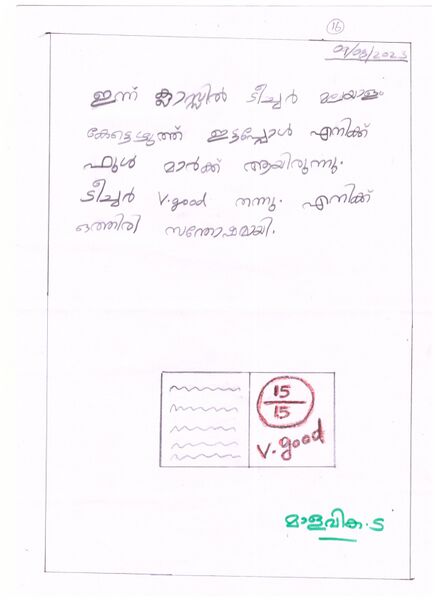 16
07/08/2023
ഇന്ന് ക്ലാസ്സിൽ ടീച്ചർ മലയാളം
കേട്ടെഴുത്ത് ഇട്ടപ്പോൾ എനിക്ക്
ഫുൾ മാർക്ക് ആയിരുന്നു.
ടീച്ചർ V.good തന്നു. എനിക്ക്
ഒത്തിരി സന്തോഷമായി.
15
15
V.good
മാളവിക.S